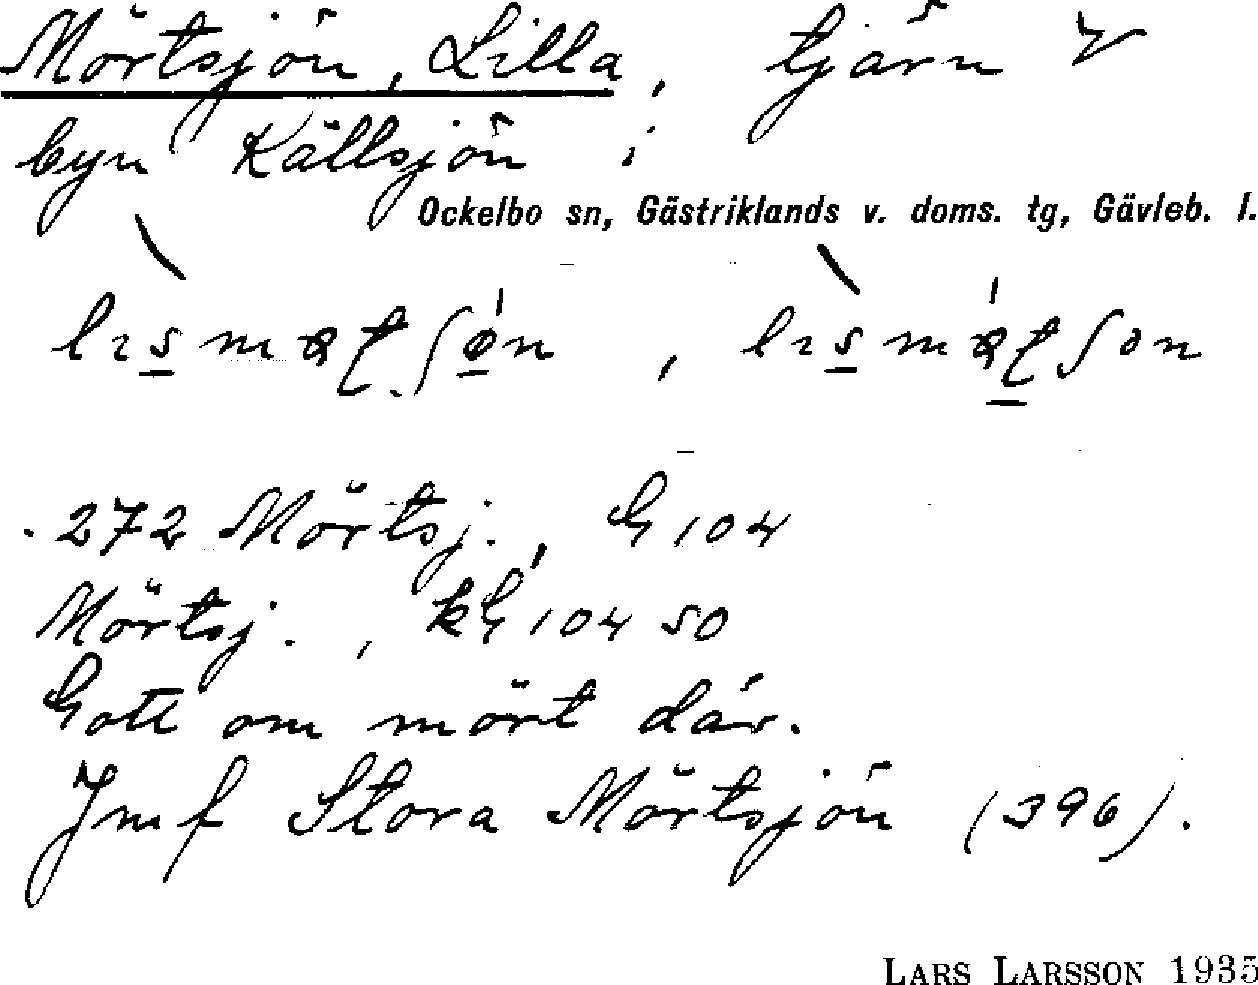 Mörtsjön, Lilla, tjärn V
byn Källsjön i
Ockelbo sn, Gästriklands v. doms. tg, Gävleb. l.
272 Mörtsj., G 104
Mörtsj., kG 104 50
Gott om mört där.
Jmf Stora Mörtsjön (396).
LARS LARSSON 1935